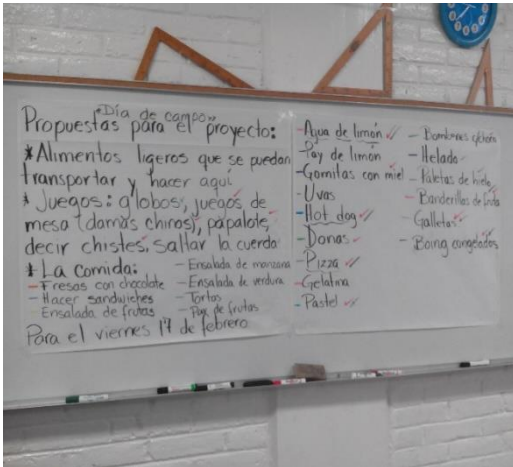 "Día de campo"
Propuestas para el proyecto:
* Alimentos ligeros que se puedan
transportar y hacer aquí
* Juegos: globos, juegos de
mesa (damas chinas), papalote,
decir chistes, saltar la cuerda
* La comida:
- Fresas con chocolate
- Hacer sandwiches
Ensalada de frutas
- Ensalada de manzana
- Ensalada de verdura
- Tortas
- Pay de frutas
Para el viernes 17 de febrero
- Agua de limón
- Pay de limón
- Gomitas con miel
- Uvas
- Hot dog
- Donas
- Pizza
- Gelatina
- Pastel
- Bombones c/chom
- Helado
- Paletas de hielo
- Banderillas de fruta
- Galletas
- Boing congelados